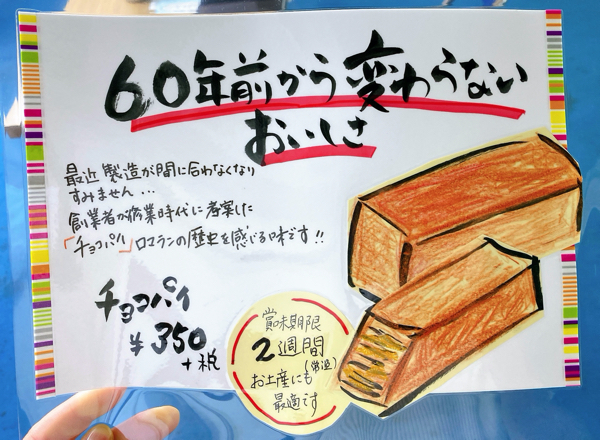 60年前から変わらない
おいしさ
最近製造が間に合わなくなり
すみません…
創業者が修業時代に考案した
「チョコパイ」ロマランの歴史を感じる味です!!
チョコパイ
¥350
+税
賞味期限
2週間
(常温)
お土産にも
最適です